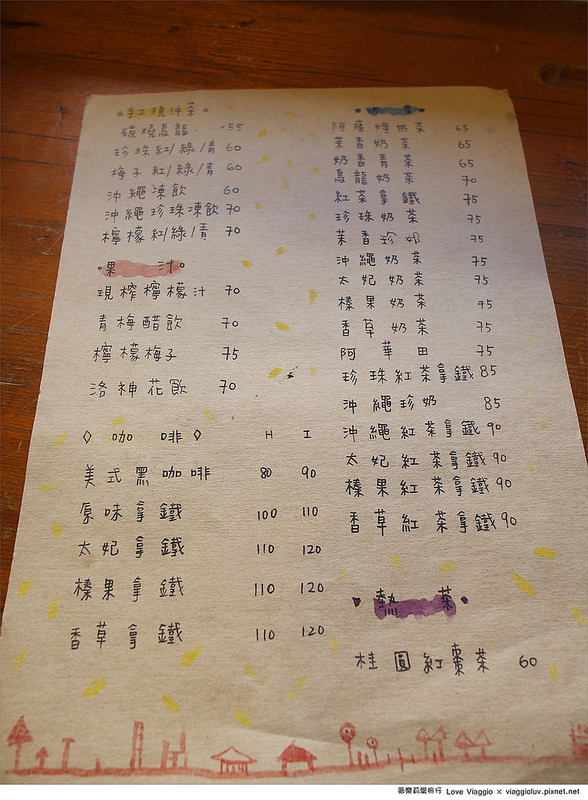 手工現沖茶
碳燒烏龍 55
珍珠紅/綠/青 60
梅子紅/綠/青 60
沖繩凍飲 60
沖繩珍珠凍飲 70
檸檬紅/綠/青 70
果汁
現榨檸檬汁 70
青梅醋飲 70
檸檬梅子 75
洛神花飲 70
咖啡 H I
美式黑咖啡 80 90
原味拿鐵 100 110
太妃拿鐵 110 120
榛果拿鐵 110 120
香草拿鐵 110 120
奶茶
阿薩姆奶茶 65
茉香奶茶 65
奶香青茶 65
烏龍奶茶 70
紅茶拿鐵 75
珍珠奶茶 75
茉香珍奶 75
沖繩奶茶 75
太妃奶茶 75
榛果奶茶 75
香草奶茶 75
阿華田 75
珍珠紅茶拿鐵 85
沖繩珍奶 85
沖繩紅茶拿鐵 90
太妃紅茶拿鐵 90
榛果紅茶拿鐵 90
香草紅茶拿鐵 90
熱茶
桂圓紅棗茶 60
Love Viaggio × viaggioluv.pixnet.net